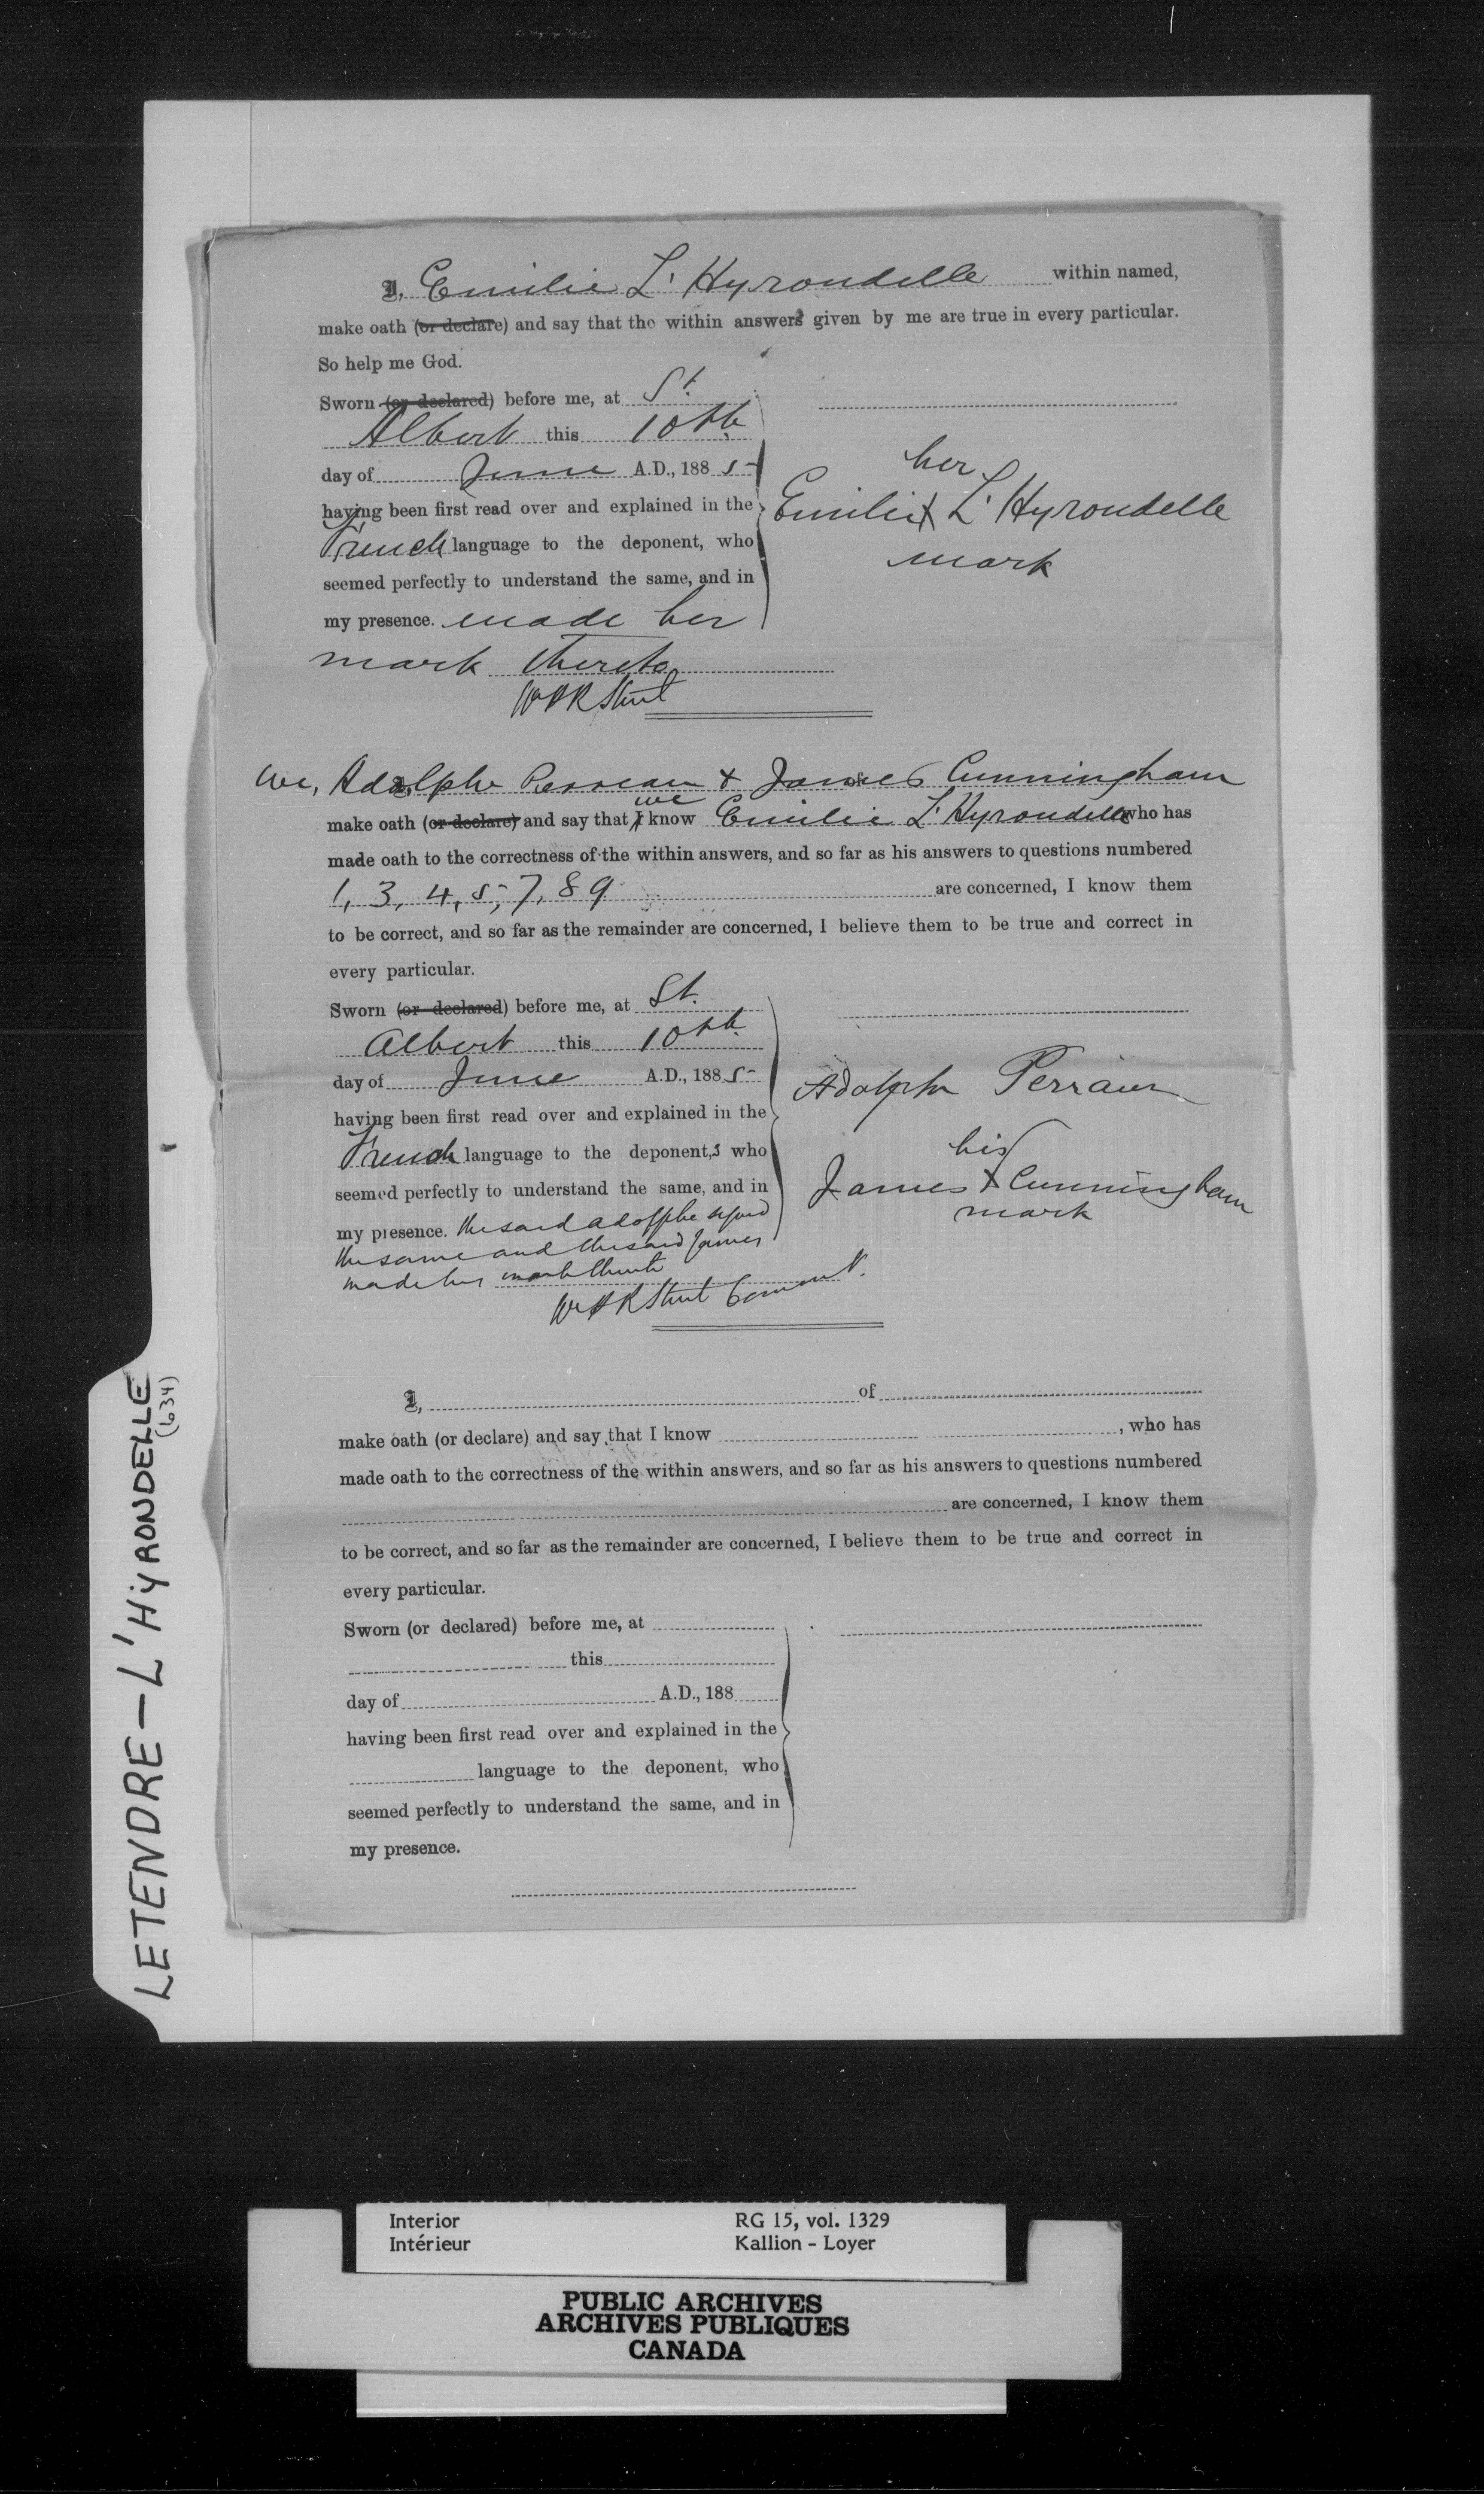 I, Emilie L'Hyrondelle within named,
make oath (or declare) and say that the within answers given by me are true in every particular.
So help me God.
Sworn (or declared) before me, at St.
Albert this 10th
day of June A.D., 1885
having been first read over and explained in the
French language to the deponent, who
seemed perfectly to understand the same, and in
my presence. made her
mark thereto
her
Emilie X L'Hyrondelle
mark
We, Adolphe Perreau & James Cunningham
make oath (or declare) and say that I we know Emilie L'Hyrondelle who has
made oath to the correctness of the within answers, and so far as his answers to questions numbered
1, 3, 4, 5, 7, 8 9 are concerned, I know them
to be correct, and so far as the remainder are concerned, I believe them to be true and correct in
every particular.
Sworn (or declared) before me, at St.
Albert this 10th
day of June A.D., 1885
having been first read over and explained in the
French language to the deponent,s who
seemed perfectly to understand the same, and in
my presence. the said Adolphe signed
the same and the said James
made his mark thereto
Adolphe
his
James X Cunningham
mark
I, of
make oath (or declare) and say that I know , who has
made oath to the correctness of the within answers, and so far as his answers to questions numbered
are concerned, I know them
to be correct, and so far as the remainder are concerned, I believe them to be true and correct in
every particular.
Sworn (or declared) before me, at
this
day of A.D., 188
having been first read over and explained in the
language to the deponent, who
seemed perfectly to understand the same, and in
my presence.
LETENDRE - L'HYRONDELLE
(634)
Interior RG 15, vol. 1329
Intérieur Kallion - Loyer
PUBLIC ARCHIVES
ARCHIVES PUBLIQUES
CANADA